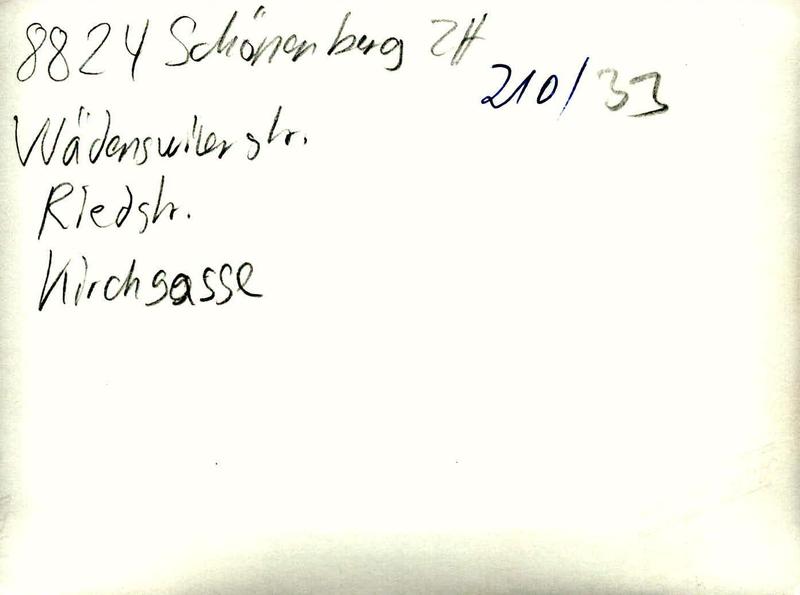 8824 Schönenberg ZH
210/33
Wädenswilerstr.
Riedstr.
Kirchgasse